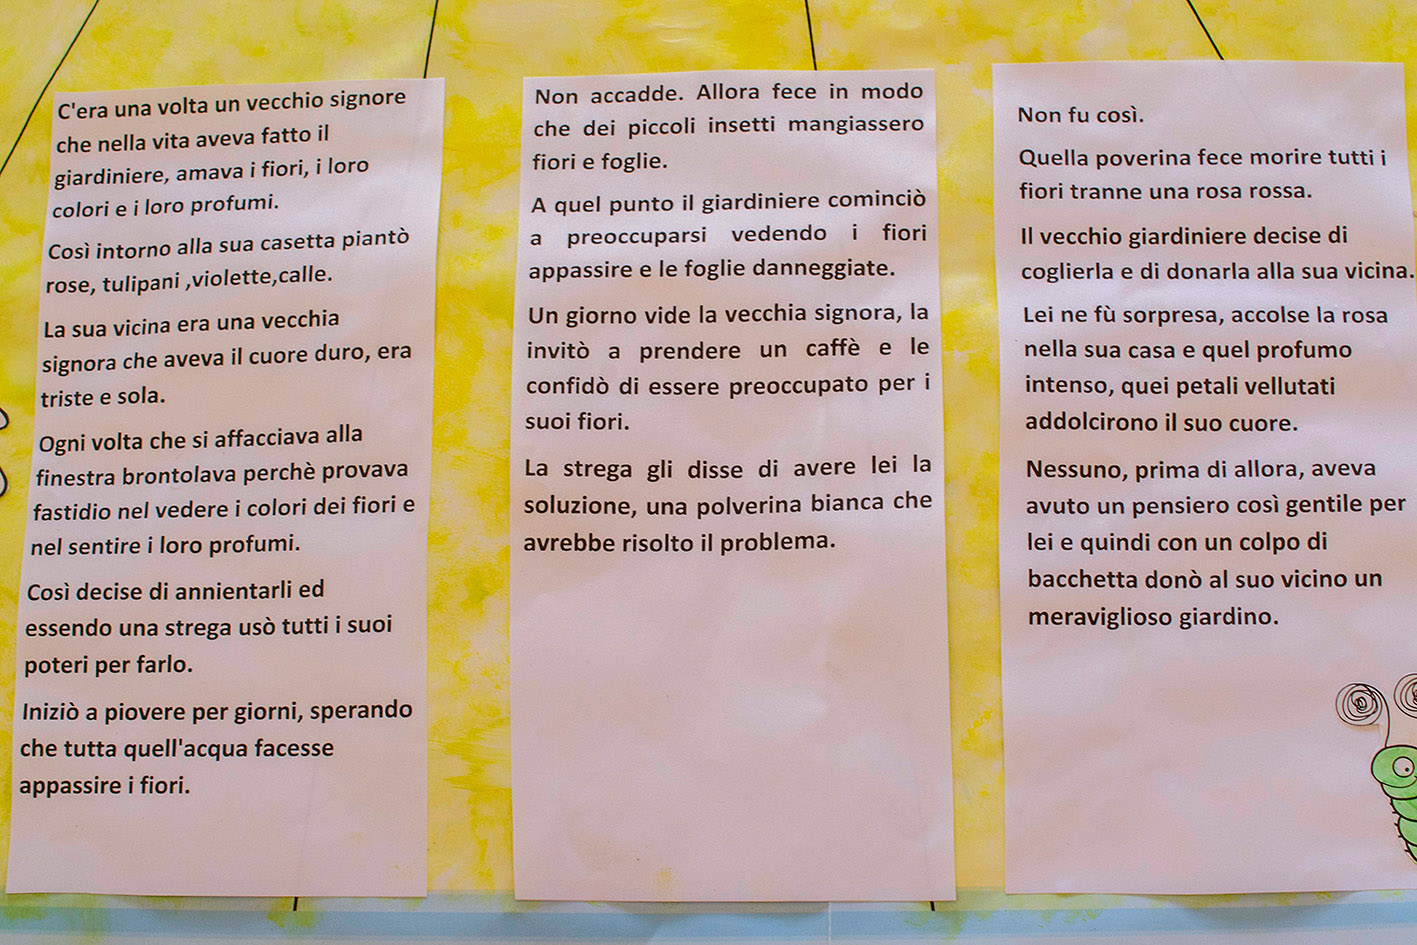 C'era una volta un vecchio signore
che nella vita aveva fatto il
giardiniere, amava i fiori, i loro
colori e i loro profumi.
Così intorno alla sua casetta piantò
rose, tulipani ,violette,calle.
La sua vicina era una vecchia
signora che aveva il cuore duro, era
triste e sola.
Ogni volta che si affacciava alla
finestra brontolava perchè provava
fastidio nel vedere i colori dei fiori e
nel sentire i loro profumi.
Così decise di annientarli ed
essendo una strega usò tutti i suoi
poteri per farlo.
Iniziò a piovere per giorni, sperando
che tutta quell'acqua facesse
appassire i fiori.
Non accadde. Allora fece in modo
che dei piccoli insetti mangiassero
fiori e foglie.
A quel punto il giardiniere cominciò
a preoccuparsi vedendo i fiori
appassire e le foglie danneggiate.
Un giorno vide la vecchia signora, la
invitò a prendere un caffè e le
confidò di essere preoccupato per i
suoi fiori.
La strega gli disse di avere lei la
soluzione, una polverina bianca che
avrebbe risolto il problema.
Non fu così.
Quella poverina fece morire tutti i
fiori tranne una rosa rossa.
Il vecchio giardiniere decise di
coglierla e di donarla alla sua vicina.
Lei ne fù sorpresa, accolse la rosa
nella sua casa e quel profumo
intenso, quei petali vellutati
addolcirono il suo cuore.
Nessuno, prima di allora, aveva
avuto un pensiero così gentile per
lei e quindi con un colpo di
bacchetta donò al suo vicino un
meraviglioso giardino.